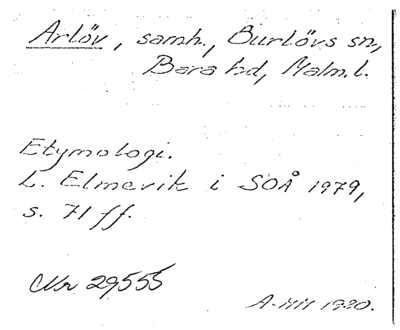 Arlöv, samh., Burlövs sn,
Bara hd, Malm. l.
Etymologi.
L. Elmevik i SOÅ 1979,
s. 71 ff.
Nr 29,555
1980.